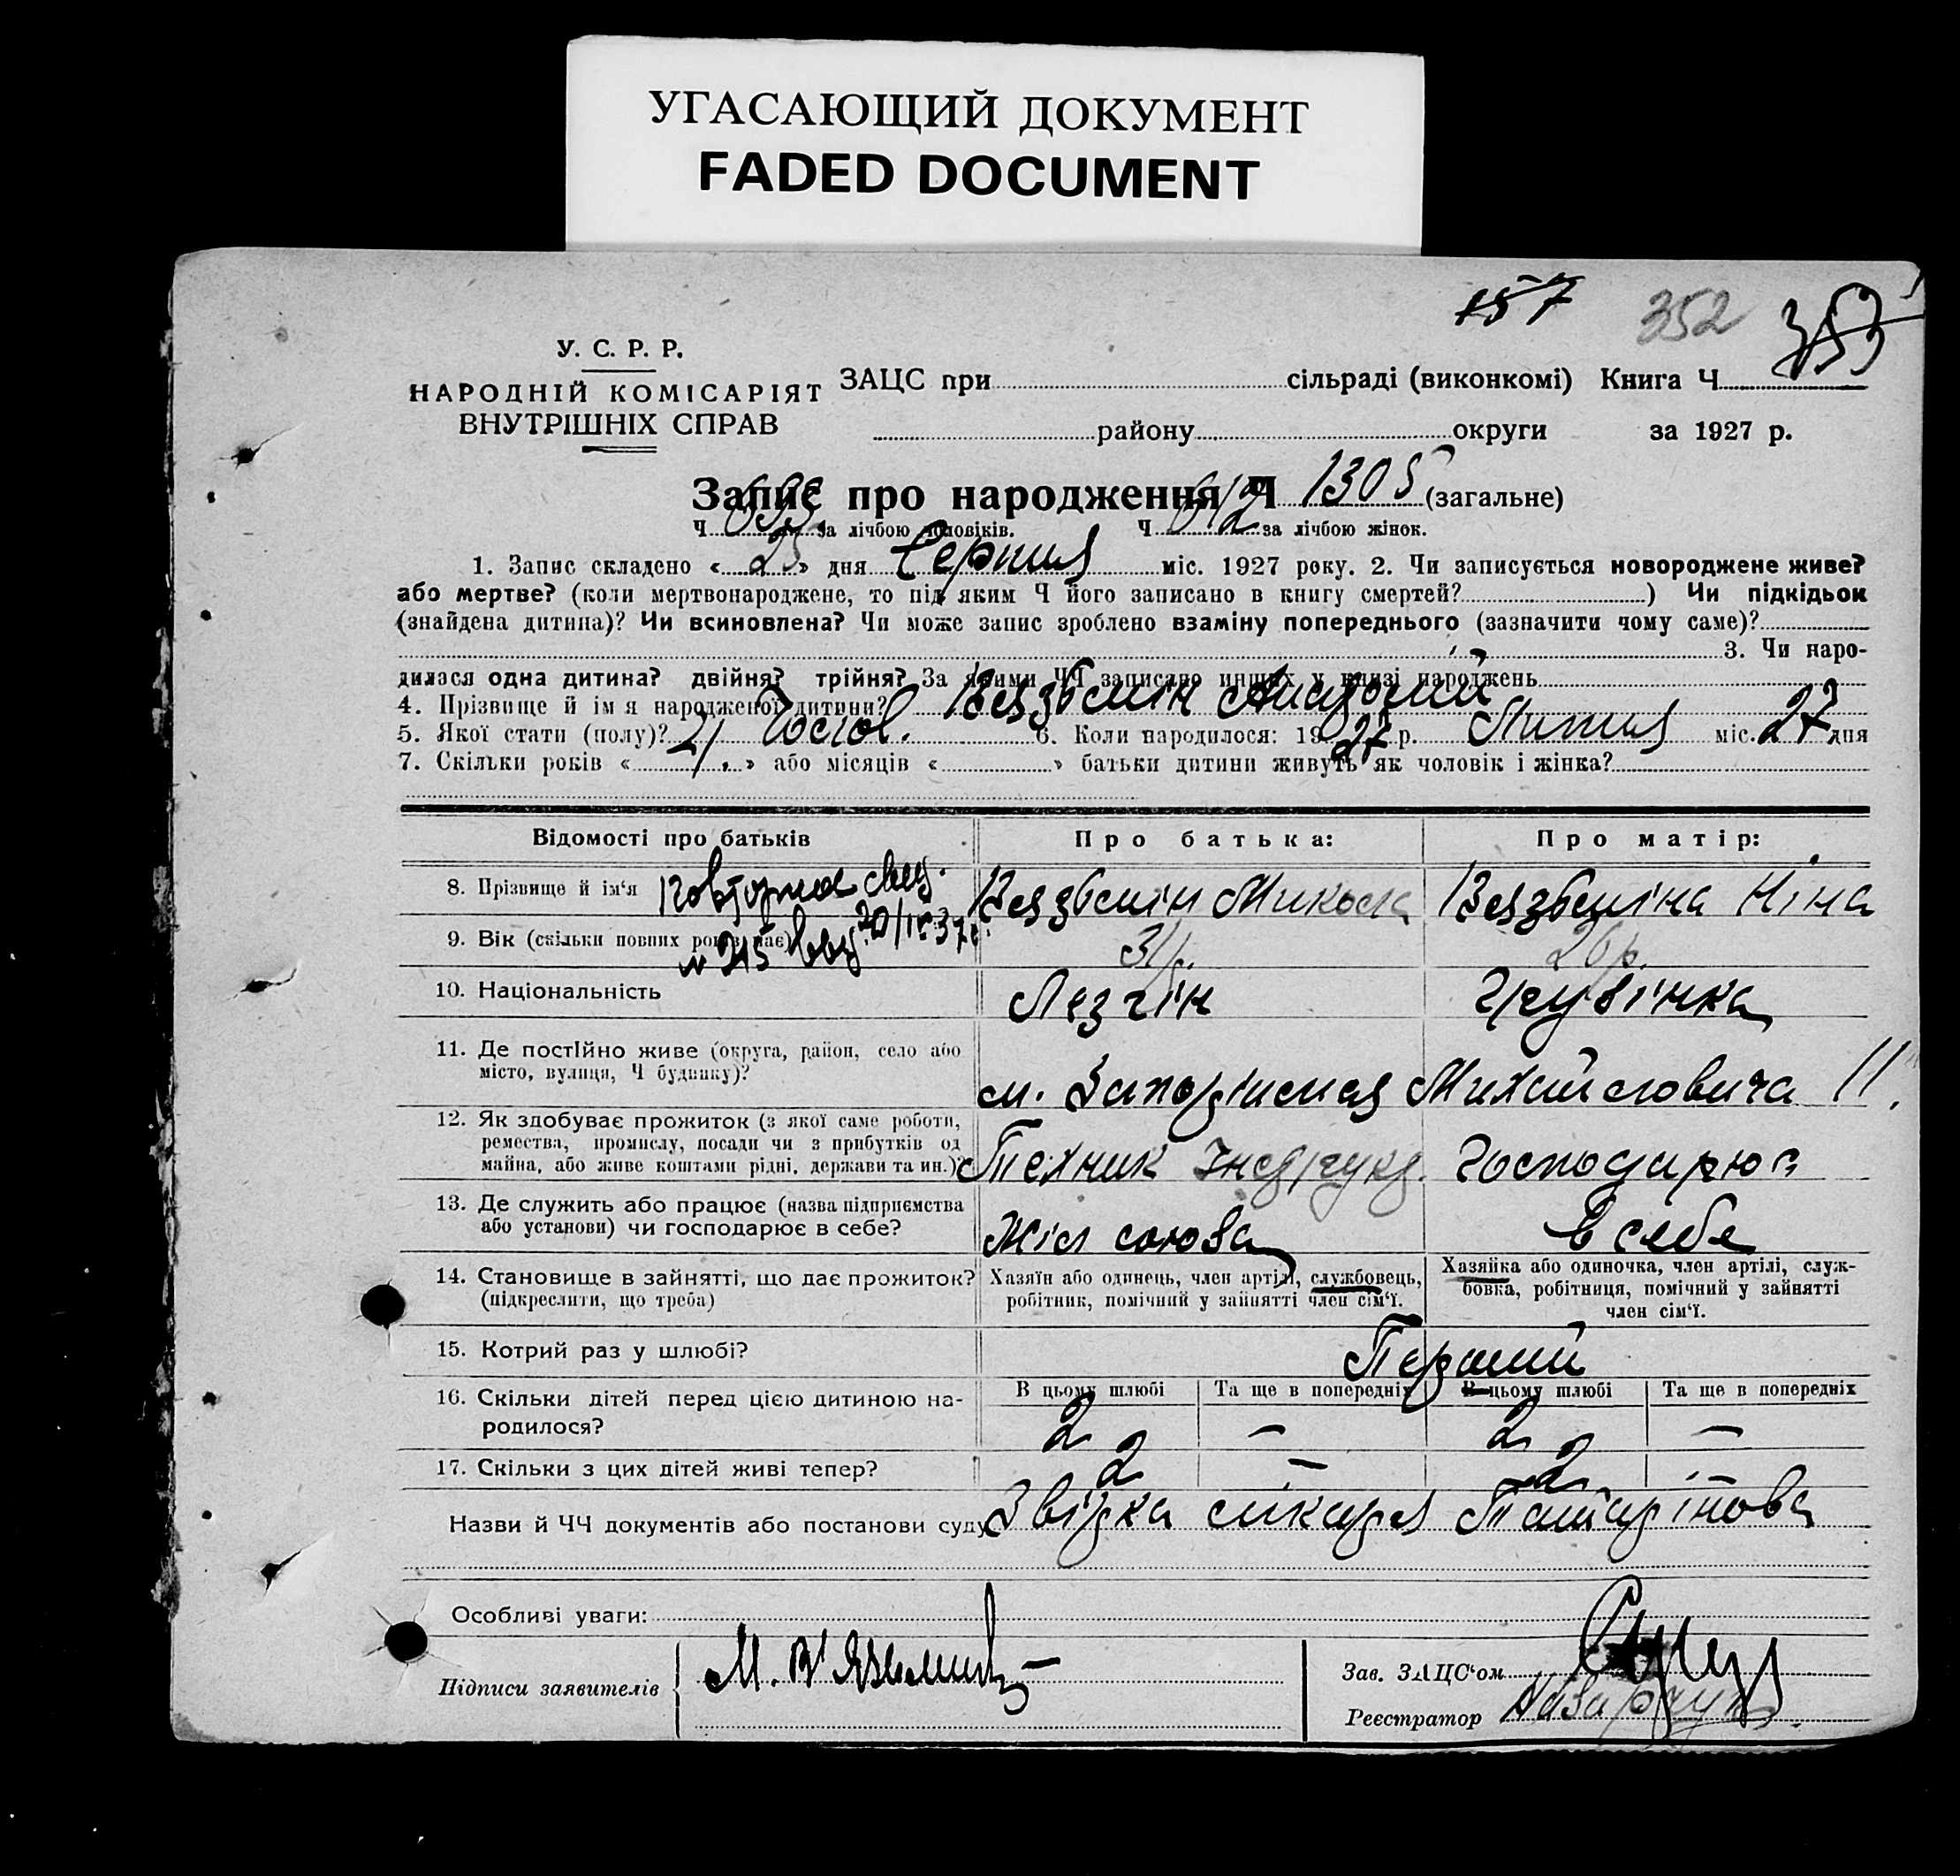 УГАСАЮЩИЙ ДОКУМЕНТ
FADED DOCUMENT
157 352 353
У. С. Р. Р.
НАРОДНІЙ КОМІСАРІЯТ
ВНУТРІШНІХ СПРАВ
ЗАЦС при сільраді (виконкомі) Книга Ч
району округи за 1927 р.
Запис про народження Ч 1305 (загальне)
Ч 693 за лічбою чоловіків. Ч 612 за лічбою жінок.
1. Запис складено « 23 » дня Серпня міс. 1927 року. 2. Чи записується новороджене живе?
або мертве? (коли мертвонароджене, то під яким Ч його записано в книгу смертей? ) Чи підкідьок
(знайдена дитина)? Чи всиновлена? Чи може запис зроблено взаміну попереднього (зазначити чому саме)?
3. Чи наро-
дилася одна дитина? двійня? трійня? За якими ЧЧ записано инших у книзі народжень
4. Прізвище й ім'я народженої дитини?
5. Якої стати (полу)? 6. Коли народилося: 1927 р. Липня міс. 27 дня
7. Скільки років « » або місяців « » батьки дитини живуть як чоловік і жінка?
Відомості про батьків Про батька: Про матір:
8. Прізвище й ім'я Микола Ніна
9. Вік (скільки повних років має) 31 р. 26 р.
10. Національність Лезгін Грузінка
11. Де постійно живе (округа, район, село або
місто, вулиця, Ч будинку)?
м. Запоріжжя Михайловича 11.
12. Як здобуває прожиток (з якої саме роботи,
ремества, промислу, посади чи з прибутків од
майна, або живе коштами рідні, держави та ин.)?
Техник
13. Де служить або працює (назва підприємства
або установи) чи господарює в себе?
Жіл союза в себе
14. Становище в зайнятті, що дає прожиток?
(підкреслити, що треба)
Хазяїн або одинець, член артілі, службовець,
робітник, помічний у зайнятті член сім'ї.
Хазяйка або одиночка, член артілі, служ-
бовка, робітниця, помічний у зайнятті
член сім'ї.
15. Котрий раз у шлюбі? Перший
16. Скільки дітей перед цією дитиною на-
родилося?
В цьому шлюбі Та ще в попередніх В цьому шлюбі Та ще в попередніх
2 — 2 —
17. Скільки з цих дітей живі тепер? 2 — 2 —
Назви й ЧЧ документів або постанови суду
Особливі уваги:
Підписи заявителів
Зав. ЗАЦС'ом
Реєстратор